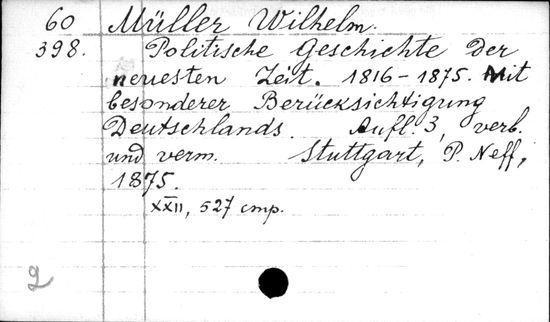 60 Müller Wilhelm.
398. Politische Geschichte der
neuesten Zeit. 1816-1875. Mit
besonderer Berücksichtigung
Deutschlands. Aufl. 3, verb.
und verm. Stuttgart, P. Neff,
1875.
XXII, 527 стр.
g